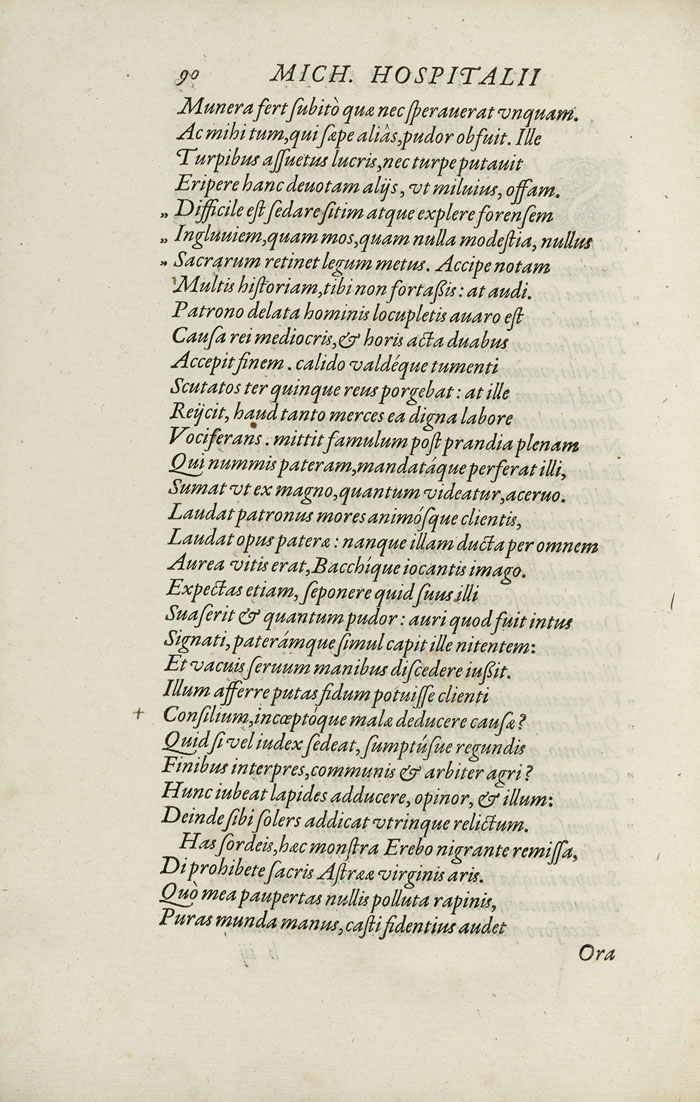 90 MICH. HOSPITALII
Munera fert ſubitò quæ nec ſperauerat vnquam.
Ac mihi tum,qui ſæpe aliàs,pudor obfuit. Ille
Turpibus aſſuetus lucris,nec turpe putauit
Eripere hanc deuotam alijs, vt miluius, offam.
„ Difficile eſt ſedare ſitim atque explere forenſem
„ Ingluuiem,quam mos,quam nulla modeſtia, nullus
„ Sacrarum retinet legum metus. Accipe notam
Multis hiſtoriam,tibi non fortaßis: at audi.
Patrono delata hominis locupletis auaro eſt
Cauſa rei mediocris,& horis acta duabus
Accepit finem. calido valdéque tumenti
Scutatos ter quinque reus porgebat: at ille
Reijcit, haud tanto merces ea digna labore
Vociferans. mittit famulum poſt prandia plenam
Qui nummis pateram,mandatáque perferat illi,
Sumat vt ex magno,quantum videatur,aceruo.
Laudat patronus mores animóſque clientis,
Laudat opus pateræ: nanque illam ducta per omnem
Aurea vitis erat,Bacchíque iocantis imago.
Expectas etiam, ſeponere quid ſuus illi
Suaſerit & quantum pudor: auri quod fuit intus
Signati, paterámque ſimul capit ille nitentem:
Et vacuis ſeruum manibus diſcedere iußit.
Illum afferre putas fidum potuiſſe clienti
+ Conſilium,incœptóque malæ deducere cauſæ?
Quid ſi vel iudex ſedeat, ſumptúſue regundis
Finibus interpres,communis & arbiter agri?
Hunc iubeat lapides adducere, opinor, & illum:
Deinde ſibi ſolers addicat vtrinque relictum.
Has ſordeis,hæc monſtra Erebo nigrante remiſſa,
Di prohibete ſacris Aſtrææ virginis aris.
Quò mea paupertas nullis polluta rapinis,
Puras munda manus,caſti fidentius audet
Ora